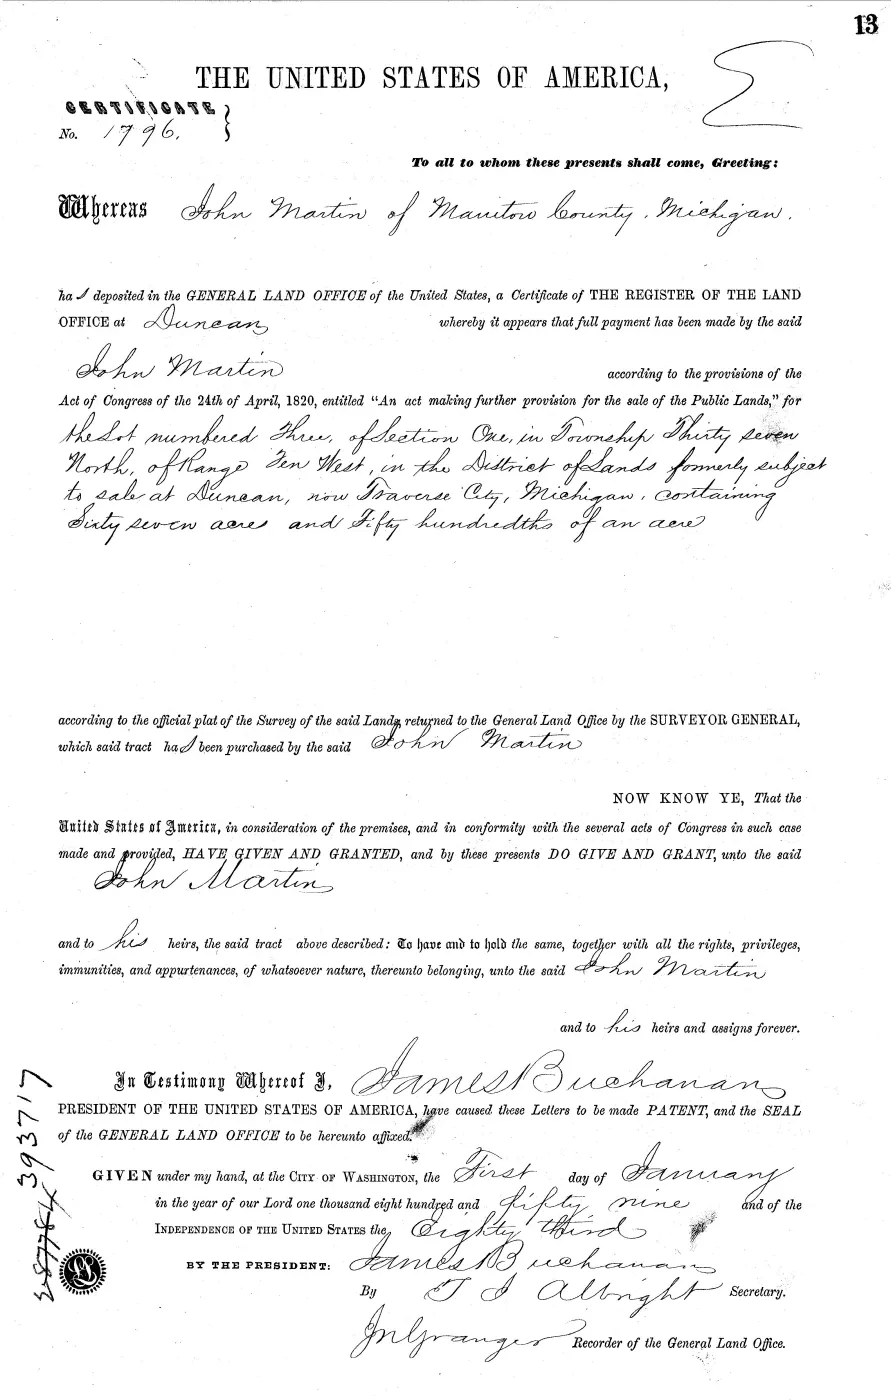 13
THE UNITED STATES OF AMERICA,
CERTIFICATE
No. 1796.
To all to whom these presents shall come, Greeting:
Whereas John Martin of Manitou County, Michigan.
has deposited in the GENERAL LAND OFFICE of the United States, a Certificate of THE REGISTER OF THE LAND
OFFICE at Duncan whereby it appears that full payment has been made by the said
John Martin according to the provisions of the
Act of Congress of the 24th of April, 1820, entitled "An act making further provision for the sale of the Public Lands," for
the Lot numbered Three, of Section One, in Township Thirty seven
North, of Range Ten West, in the District of Lands formerly subject
to sale at Duncan, now Traverse City, Michigan, containing
Sixty seven acres and Fifty hundredths of an acre
according to the official plat of the Survey of the said Lands, returned to the General Land Office by the SURVEYOR GENERAL,
which said tract has been purchased by the said John Martin
NOW KNOW YE, That the
United States of America, in consideration of the premises, and in conformity with the several acts of Congress in such case
made and provided, HAVE GIVEN AND GRANTED, and by these presents DO GIVE AND GRANT, unto the said
John Martin
and to his heirs, the said tract above described: To have and to hold the same, together with all the rights, privileges,
immunities, and appurtenances, of whatsoever nature, thereunto belonging, unto the said John Martin
and to his heirs and assigns forever.
In Testimony Whereof I, James Buchanan
PRESIDENT OF THE UNITED STATES OF AMERICA, have caused these Letters to be made PATENT, and the SEAL
of the GENERAL LAND OFFICE to be hereunto affixed.
GIVEN under my hand, at the CITY OF WASHINGTON, the First day of January
in the year of our Lord one thousand eight hundred and fifty nine and of the
INDEPENDENCE OF THE UNITED STATES the Eighty third
BY THE PRESIDENT: James Buchanan
By T J Albright Secretary.
J N Granger Recorder of the General Land Office.
393717